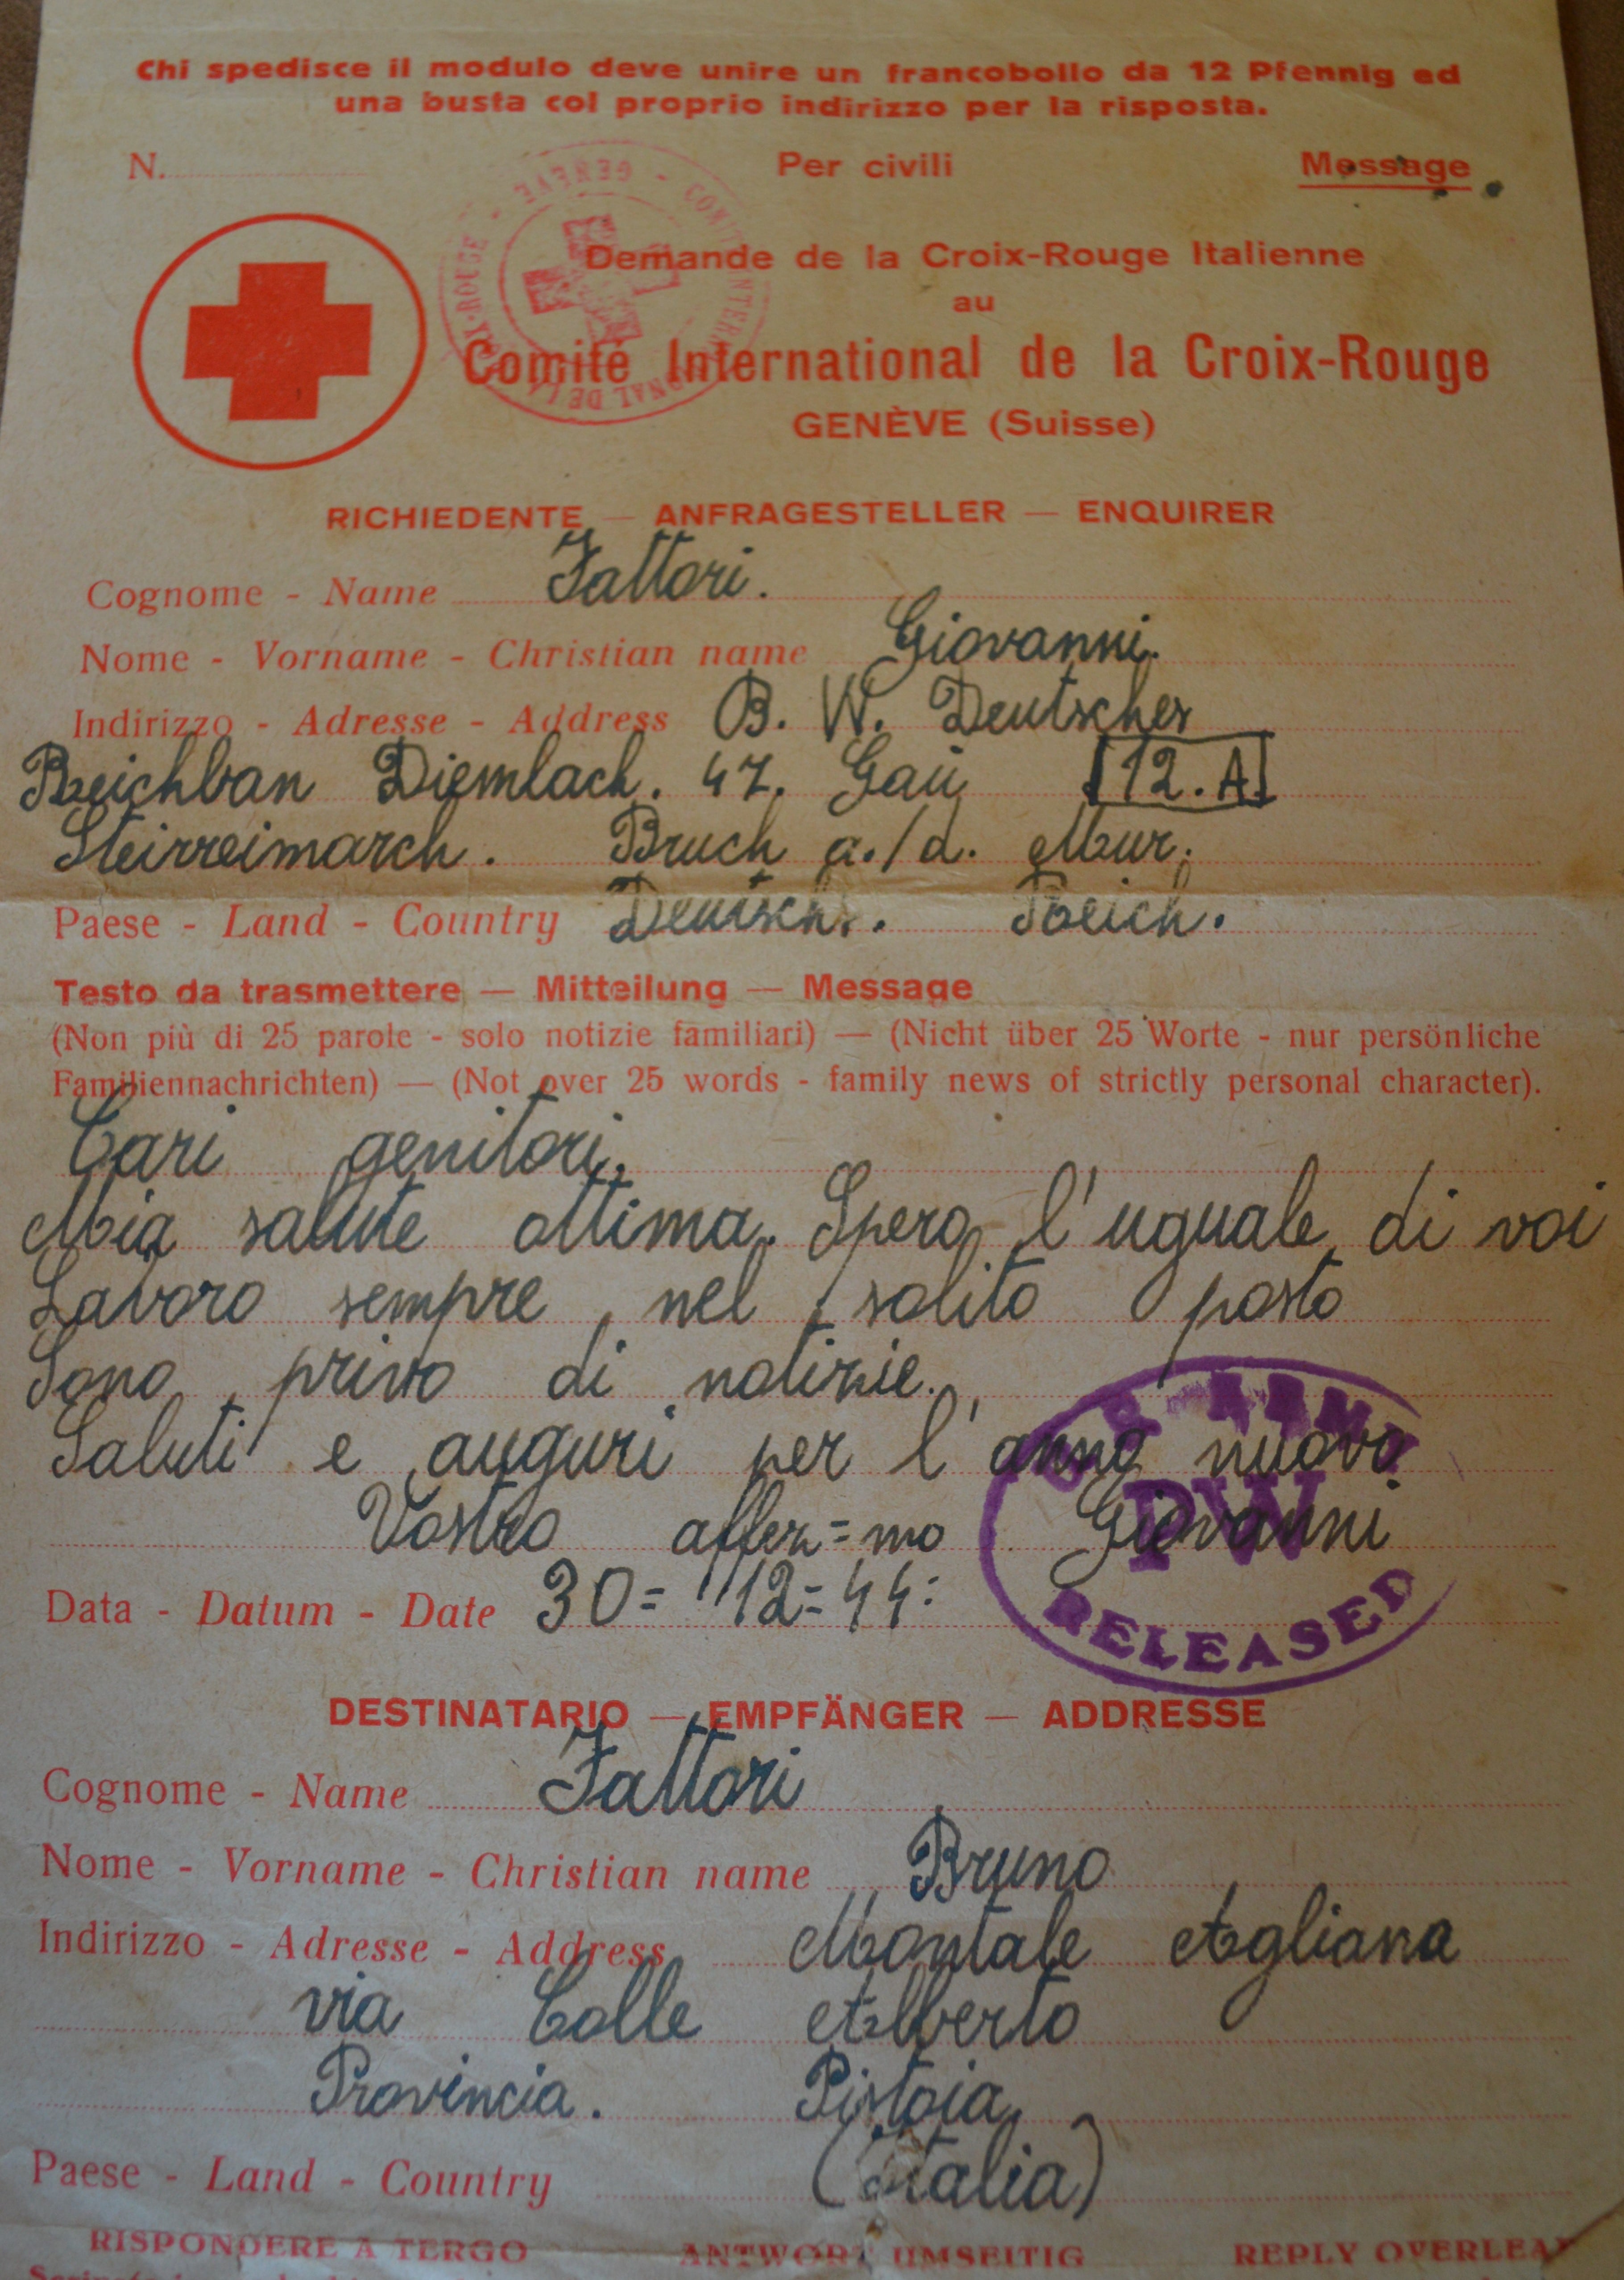 Chi spedisce il modulo deve unire un francobollo da 12 Pfennig ed
una busta col proprio indirizzo per la risposta.
N. Per civili Message
COMITÉ INTERNATIONAL DE LA CROIX-ROUGE - GENÈVE -
Demande de la Croix-Rouge Italienne
au
Comité International de la Croix-Rouge
GENÈVE (Suisse)
RICHIEDENTE — ANFRAGESTELLER — ENQUIRER
Cognome - Name Fattori.
Nome - Vorname - Christian name Giovanni.
Indirizzo - Adresse - Address B. W. Deutscher
Reichban Diemlach. 47. Gau 12.A
Steirreimarch. Bruch a./d. Mur.
Paese - Land - Country Deutsch.. Reich.
Testo da trasmettere — Mitteilung — Message
(Non più di 25 parole - solo notizie familiari) — (Nicht über 25 Worte - nur persönliche
Familiennachrichten) — (Not over 25 words - family news of strictly personal character).
Cari genitori.
Mia salute ottima. Spero l'uguale di voi
Lavoro sempre nel solito posto
Sono privo di notizie.
Saluti e auguri per l'anno nuovo
Vostro affez=mo Giovanni
PW
RELEASED
Data - Datum - Date 30= 12=44:
DESTINATARIO — EMPFÄNGER — ADDRESSE
Cognome - Name Fattori
Nome - Vorname - Christian name Bruno
Indirizzo - Adresse - Address Montale Agliana
via Colle Alberto
Provincia. Pistoia
Paese - Land - Country (Italia)
RISPONDERE A TERGO ANTWORT UMSEITIG REPLY OVERLEAF